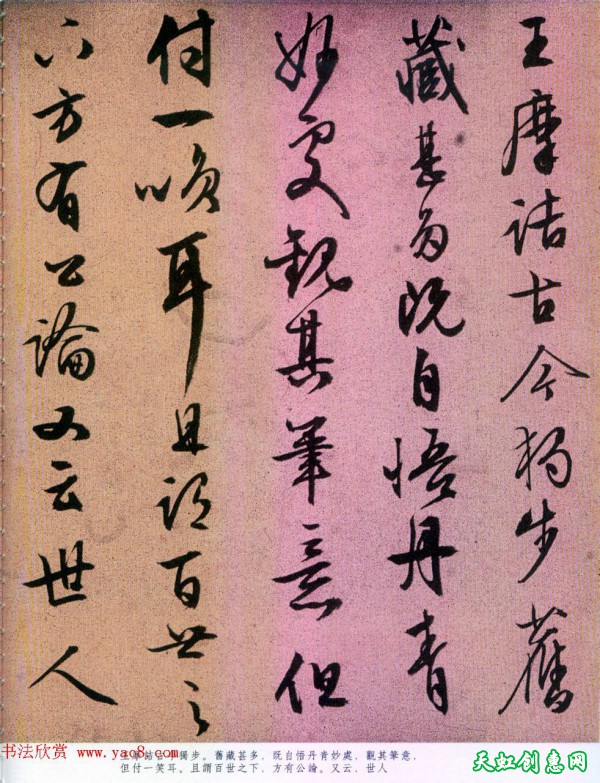 王摩詰古今獨步舊
藏甚多既自悟丹青
妙處觀其筆意但
付一咲耳且謂百世之
下方有公論又云世人
王摩詰古今獨步。舊藏甚多，既自悟丹青妙處，觀其筆意，
但付一笑耳。且謂百世之下，方有公論。又云，世人
书法欣赏 www.yac8.com
天虹创意网